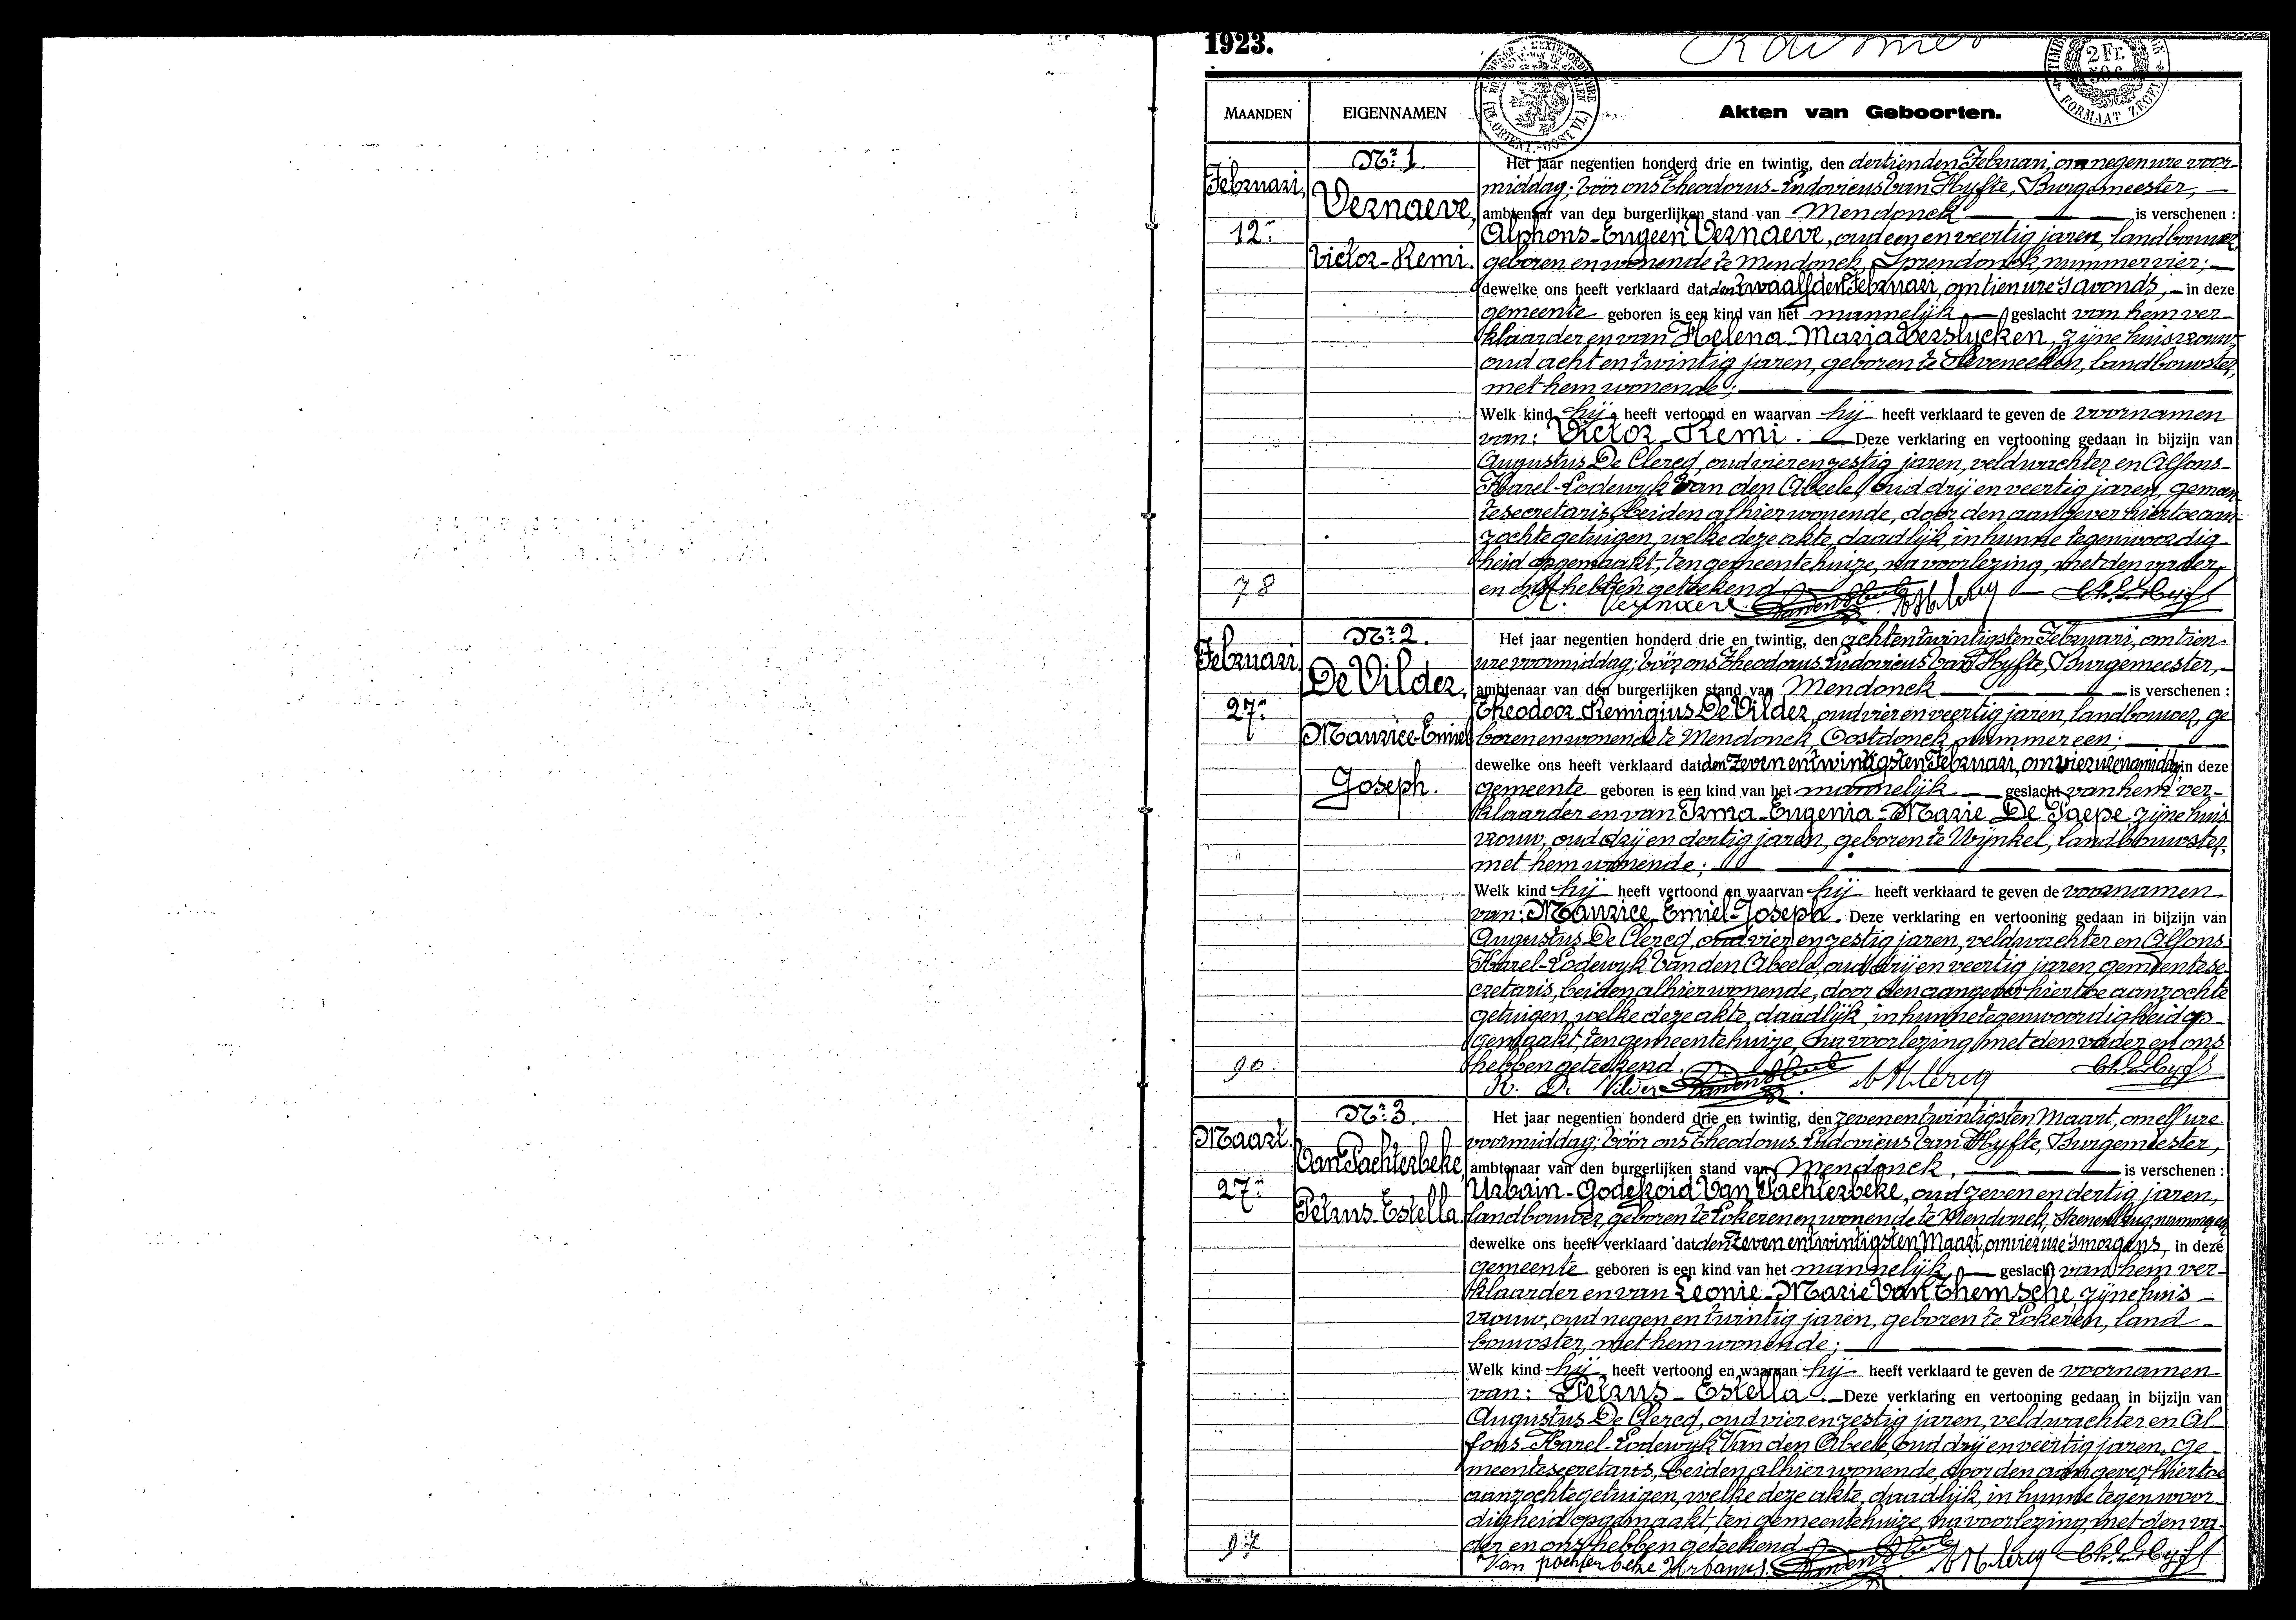 1923.
2 Fr.
50 c.
FORMAAT ZEGEL
Maanden
EIGENNAMEN
Akten van Geboorten.
Nr. 1.
Februari,
12n
Vernaeve,
Victor-Remi.
78
Het jaar negentien honderd drie en twintig, den dertienden Februari, om negen ure voor-
middag; vóór ons Theodorus-Ludovicus Van Hyfte, Burgemeester,
ambtenaar van den burgerlijken stand van Mendonck is verschenen :
Alphons-Eugeen Vernaeve, oud een en veertig jaren, landbouwer,
geboren en wonende te Mendonck, Sprendonck, nummer vier;
dewelke ons heeft verklaard dat den twaalfden Februari, om tien ure 's avonds, in deze
gemeente geboren is een kind van het mannelijk geslacht van hem ver-
klaarder en van Helena-Maria Verslycken, zijne huisvrouw
oud acht en twintig jaren, geboren te Seveneeken, landbouwster,
met hem wonende;
Welk kind hij heeft vertoond en waarvan hij heeft verklaard te geven de voornamen
van: Victor-Remi. Deze verklaring en vertooning gedaan in bijzijn van
Augustus De Clercq, oud vier en zestig jaren, veldwachter en Alfons-
Karel-Lodewyk Van den Abeele, oud drij en veertig jaren, gemeen-
tesecretaris, beiden alhier wonende, door den aangever hiertoe aan-
zochte getuigen, welke deze akte, daadlijk, in hunne tegenwoordig-
heid opgemaakt, ten gemeentehuize, na voorlezing, met den vader
en ons hebben geteekend
A. Vernaeve
Nr. 2.
Februari
27n
De Vilder,
Maurice-Emiel
Joseph.
90.
Het jaar negentien honderd drie en twintig, den achtentwintigsten Februari, om tien
ure voormiddag; vóór ons Theodorus Ludovicus Van Hyfte, Burgemeester,
ambtenaar van den burgerlijken stand van Mendonck is verschenen :
Theodoor-Remigius De Vilder, oud vier en veertig jaren, landbouwer, ge-
boren en wonende te Mendonck, Oostdonck, nummer een;
dewelke ons heeft verklaard dat den zeven en twintigsten Februari, om vier ure namiddag, in deze
gemeente geboren is een kind van het mannelijk geslacht van hem ver-
klaarder en van Irma-Eugenia-Marie De Paepe, zijne huis
vrouw, oud drij en dertig jaren, geboren te Wynkel, landbouwster,
met hem wonende;
Welk kind hij heeft vertoond en waarvan hij heeft verklaard te geven de voornamen
van: Maurice-Emiel-Joseph. Deze verklaring en vertooning gedaan in bijzijn van
Augustus De Clercq, oud vier en zestig jaren, veldwachter en Alfons-
Karel-Lodewyk Van den Abeele, oud drij en veertig jaren, gemeentese-
cretaris, beiden alhier wonende, door den aangever hiertoe aanzochte
getuigen, welke deze akte, daadlijk, in hunne tegenwoordigheid op-
gemaakt, ten gemeentehuize, na voorlezing, met den vader en ons
hebben geteekend.
R. De Vilder
Nr. 3
Maart.
27n
Van Pachterbeke,
Petrus-Estella.
97
Het jaar negentien honderd drie en twintig, den zevenentwintigsten Maart, om elf ure
voormiddag; vóór ons Theodorus Ludovicus Van Hyfte, Burgemeester,
ambtenaar van den burgerlijken stand van Mendonck, is verschenen :
Urbain-Godefroid Van Pachterbeke, oud zeven en dertig jaren,
landbouwer, geboren te Lokeren en wonende te Mendonck,
dewelke ons heeft verklaard dat den zeven en twintigsten Maart, om vier ure 's morgens, in deze
gemeente geboren is een kind van het mannelijk geslacht van hem ver-
klaarder en van Leonie-Marie Van Themsche, zijne huis-
vrouw, oud negen en twintig jaren, geboren te Lokeren, land-
bouwster, met hem wonende;
Welk kind hij heeft vertoond en waarvan hij heeft verklaard te geven de voornamen
van: Petrus-Estella. Deze verklaring en vertooning gedaan in bijzijn van
Augustus De Clercq, oud vier en zestig jaren, veldwachter en Al-
fons-Karel-Lodewyk Van den Abeele, oud drij en veertig jaren, ge-
meentesecretaris, beiden alhier wonende, door den aangever hiertoe
aanzochte getuigen, welke deze akte, daadlijk, in hunne tegenwoor-
digheid opgemaakt, ten gemeentehuize, na voorlezing, met den va-
der en ons hebben geteekend
Van pachterbeke Urbanus.